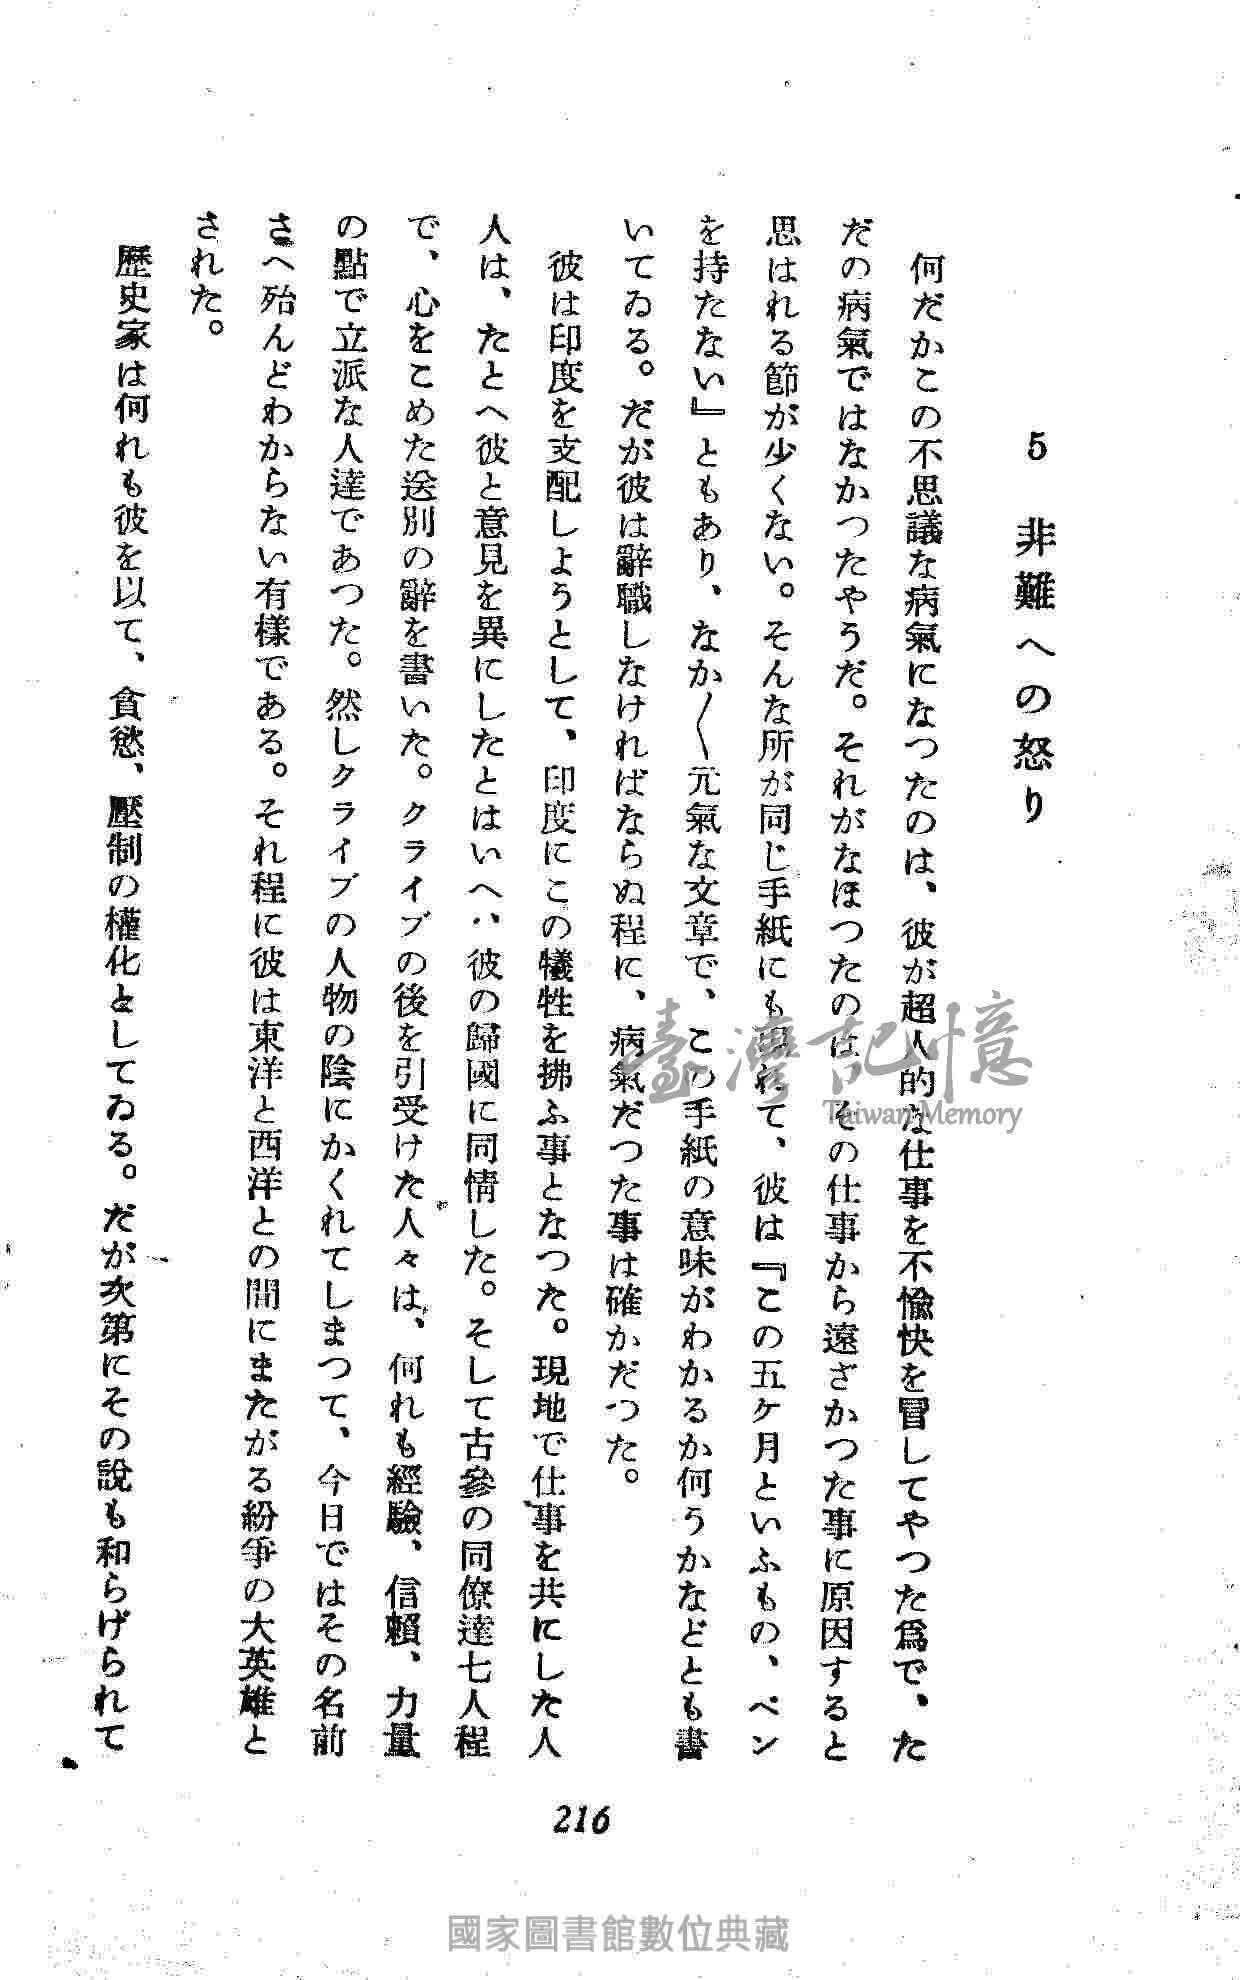 5　非難への怒り
何だかこの不思議な病氣になつたのは、彼が超人的な仕事を不愉快を冒してやつた爲で、た
だの病氣ではなかつたやうだ。それがなほつたのは、その仕事から遠ざかつた事に原因すると
思はれる節が少くない。そんな所が同じ手紙にも現れて、彼は『この五ケ月といふもの、ペン
を持たない』ともあり、なか〱元氣な文章で、この手紙の意味がわかるか何うかなどとも書
いてゐる。だが彼は辭職しなければならぬ程に、病氣だつた事は確かだつた。
彼は印度を支配しようとして、印度にこの犧牲を拂ふ事となつた。現地で仕事を共にした人
人は、たとへ彼と意見を異にしたとはいへ、彼の歸國に同情した。そして古參の同僚達七人程
で、心をこめた送別の辭を書いた。クライブの後を引受けた人々は、何れも經驗、信賴、力量
の點で立派な人達であつた。然しクライブの人物の陰にかくれてしまつて、今日ではその名前
さへ殆んどわからない有樣である。それ程に彼は東洋と西洋との間にまたがる紛爭の大英雄と
された。
歷史家は何れも彼を以て、貪慾、壓制の權化としてゐる。だが次第にその說も和らげられて
216
臺灣記憶
Taiwan Memory
國家圖書館數位典藏